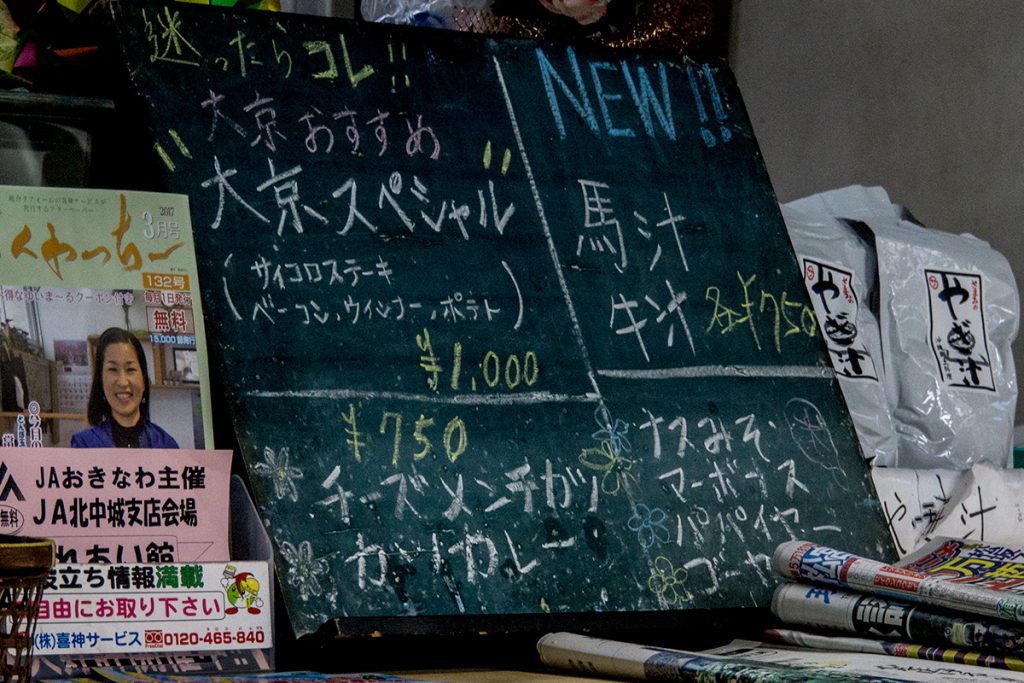 迷ったらコレ!!
大京おすすめ
"大京スペシャル"
(サイコロステーキ
ベーコン、ウインナー、ポテト)
¥1,000
¥750
チーズメンチカツ
カツカレー
NEW!!
馬汁
牛汁 各¥750
ナスみそ
マーボナス
パパイヤー
ゴーヤー
2017
3月号
くわっちー
132号
毎月1日発行
無料
15,000部発行
JAおきなわ主催
JA北中城支店会場
無料
れあい館
役立ち情報満載
自由にお取り下さい
(株)喜神サービス 0120-465-840
やぎ汁
やぎ汁